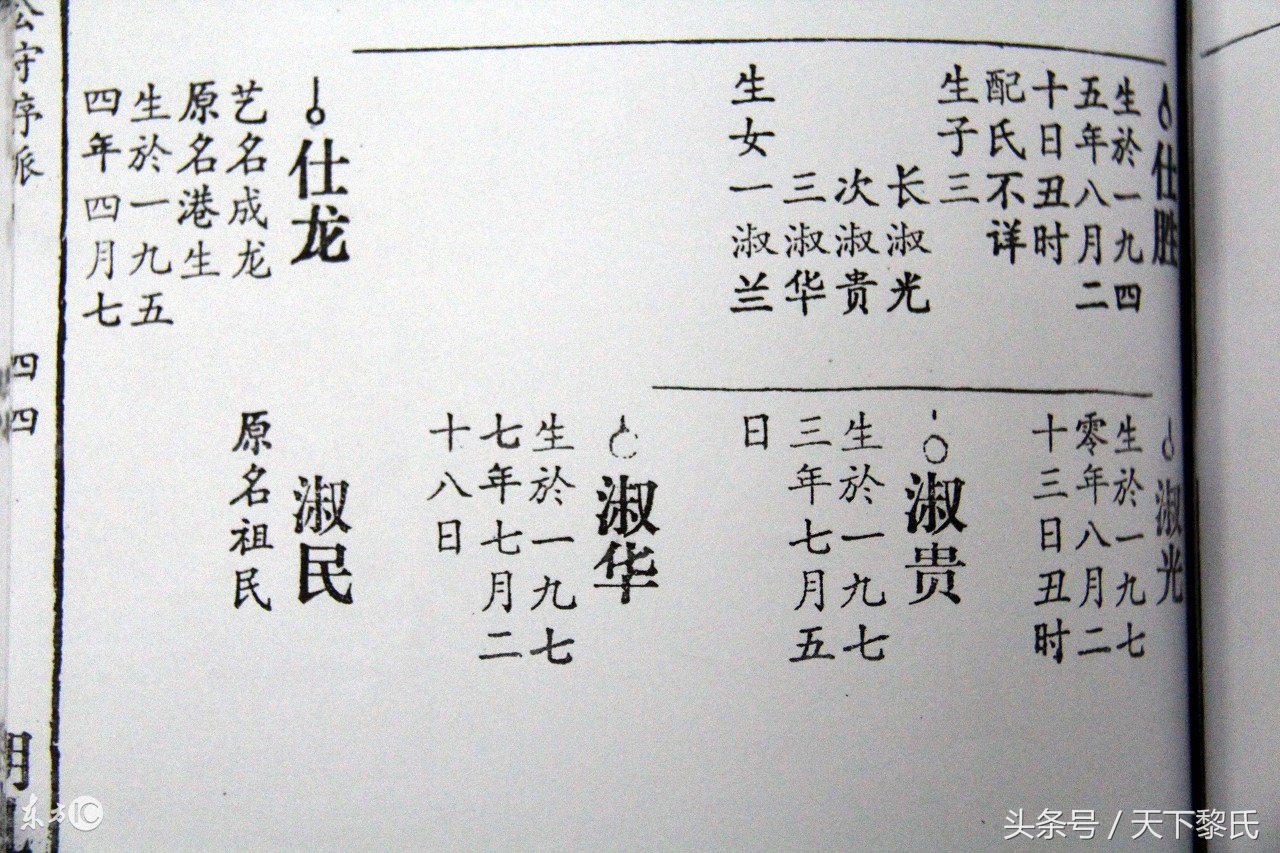 仕胜
生於一九四
五年八月二
十日丑时
配氏不详
生子三
长淑光
次淑贵
三淑华
生女一淑兰
仕龙
艺名成龙
原名港生
生於一九五
四年四月七
淑光
生於一九七
零年八月二
十三日丑时
淑贵
生於一九七
三年七月五
日
淑华
生於一九七
七年七月二
十八日
淑民
原名祖民
公守序派
四四
东方IC
头条号 / 天下黎氏